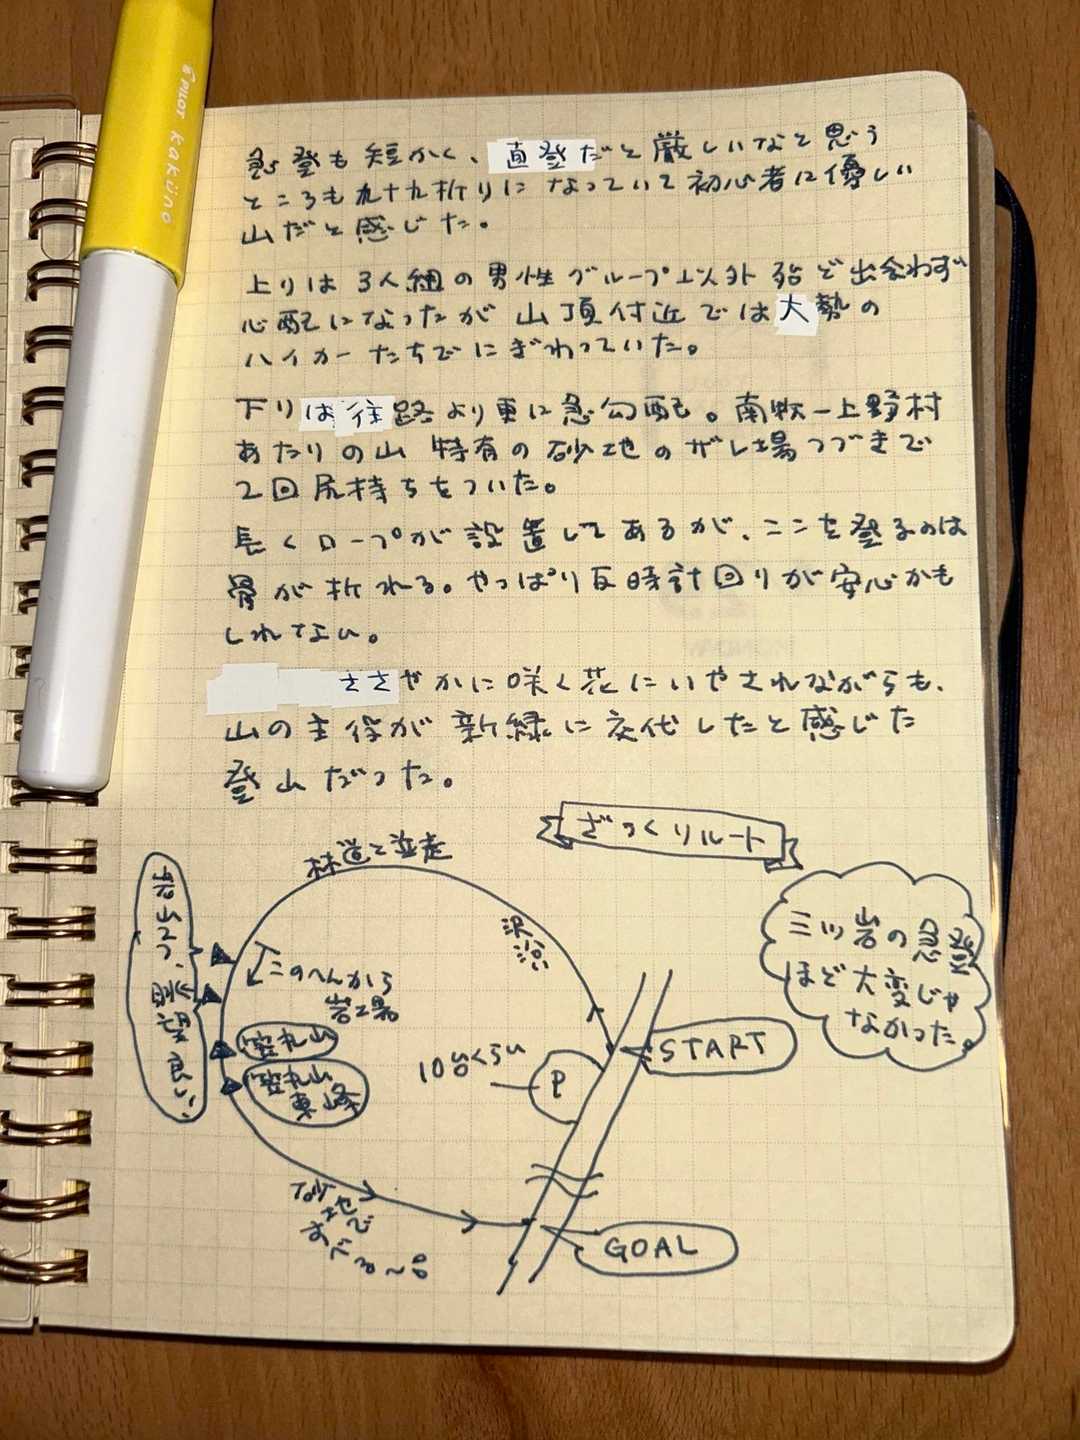 PILOT kaküno
急登も短かく、直登だと厳しいなと思う
ところも九十九折りになっていて初心者に優しい
山だと感じた。
上りは3人組の男性グループ以外殆ど出会わず
心配になったが山頂付近では大勢の
ハイカーたちでにぎわっていた。
下りは往路より更に急勾配。南牧ー上野村
あたりの山特有の砂地のガレ場つづきで
2回尻持ちをついた。
長くロープが設置してあるが、ここを登るのは
骨が折れる。やっぱり反時計回りが安心かも
しれない。
ささやかに咲く花にいやされながらも、
山の主役が新緑に交代したと感じた
登山だった。
ざっくりルート
林道と並走
沢沿い
岩山2つ、眺望良い、
このへんから
岩場
三ツ岩の急登
ほど大変じゃ
なかった。
START
10台くらい
P
安礼山
安礼山
東峰
砂地で
すべる〜
GOAL